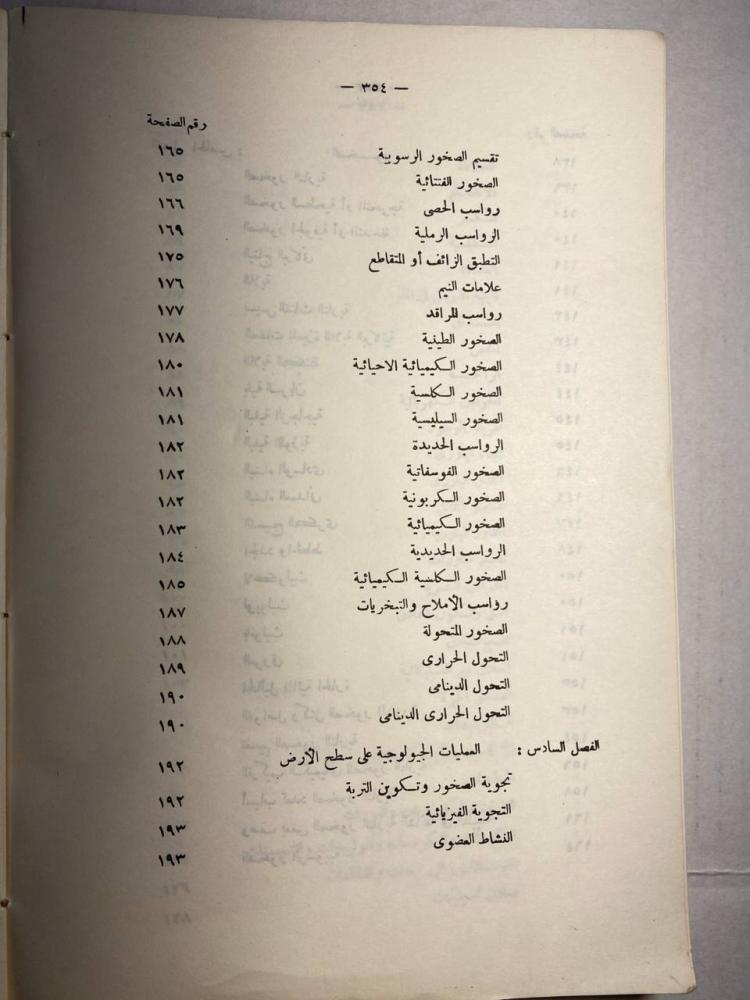 — ٣٥٤ —
رقم الصفحة
تقسيم الصخور الرسوبية ١٦٥
الصخور الفتتائية ١٦٥
رواسب الحصى ١٦٦
الرواسب الرملية ١٦٩
التطبق الزائف أو المتقاطع ١٧٥
علامات النيم ١٧٦
رواسب المراقد ١٧٧
الصخور الطينية ١٧٨
الصخور الكيميائية الاحيائية ١٨٠
الصخور الكلسية ١٨١
الصخور السيليسية ١٨١
الرواسب الحديدة ١٨٢
الصخور الفوسفاتية ١٨٢
الصخور الكربونية ١٨٢
الصخور الكيميائية ١٨٣
الرواسب الحديدية ١٨٤
الصخور الكلسية الكيميائية ١٨٥
رواسب الأملاح والتبخريات ١٨٧
الصخور المتحولة ١٨٨
التحول الحرارى ١٨٩
التحول الدينامى ١٩٠
التحول الحرارى الدينامى ١٩٠
الفصل السادس : العمليات الجيولوجية على سطح الأرض ١٩٢
تجوية الصخور وتكوين التربة ١٩٢
التجوية الفيزيائية ١٩٣
النشاط العضوى ١٩٣